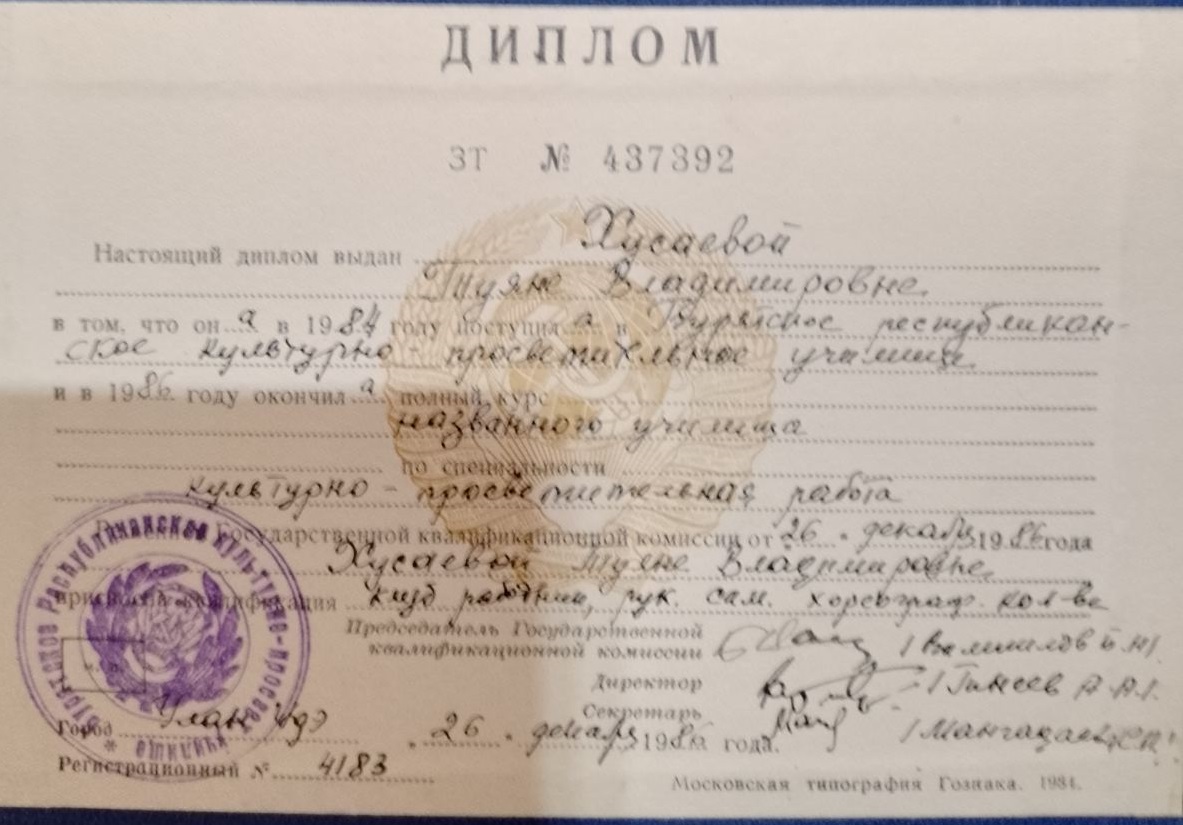 ДИПЛОМ
ЗТ № 437392
Настоящий диплом выдан Хусаевой
Туяне Владимировне.
в том, что он а в 1984 году поступил а в Бурятское республикан-
ское культурно-просветительное училище
и в 1986 году окончил а полный курс
названного училища
по специальности
культурно-просветительная работа
Государственной квалификационной комиссии от 26 декабря 1986 года
Хусаевой Туяне Владимировне.
присвоена квалификация клуб работник, рук. сам. хореограф. кол-ва
Председатель Государственной
квалификационной комиссии
Директор
Секретарь
Город Улан-Удэ 26 декабря 1986 года.
Регистрационный № 4183
Московская типография Гознака. 1984.
Бурятское Республиканское культурно-просвет училище